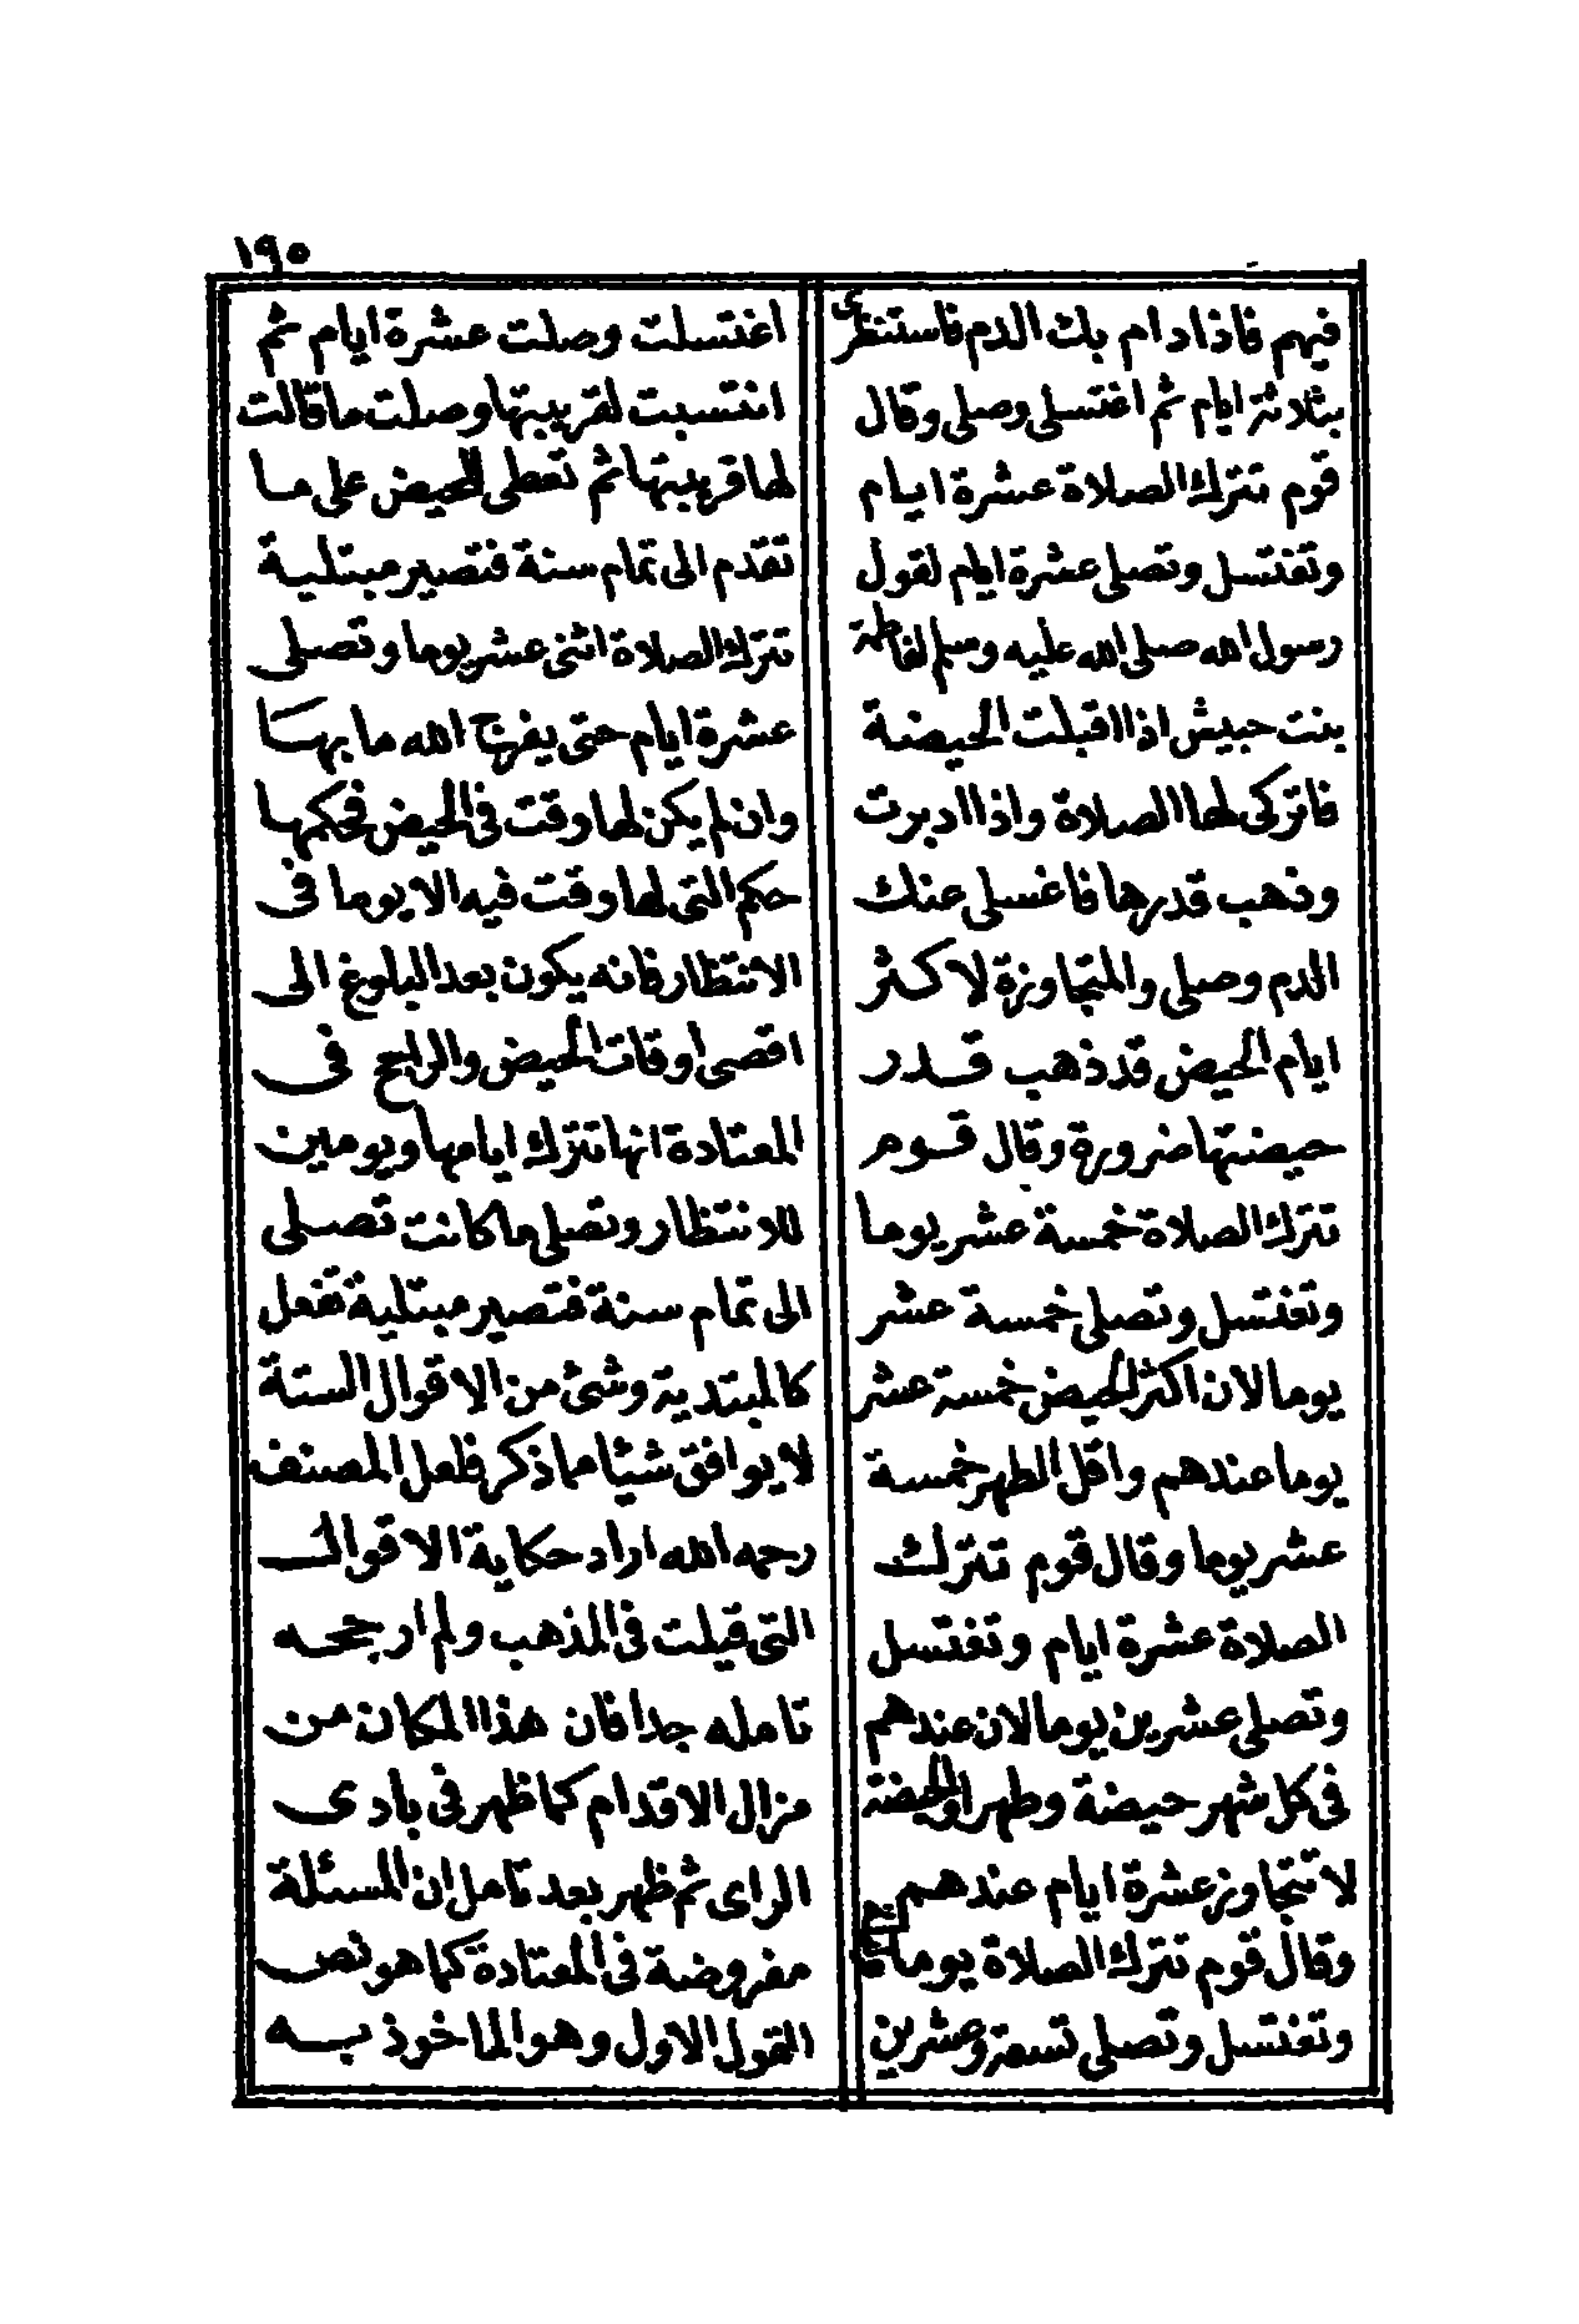 ١٩٥
فيهم فاذا دام بك الدم فاستنظرى
بثلاثة ايام ثم اغتسلى وصلى وقال
قوم تترك الصلاة عشرة ايام
وتغتسل وتصلى عشرة ايام لقول
رسول الله صلى الله عليه وسلم لفاطمة
بنت حبيش اذا اقبلت الحيضة
فاتركى لها الصلاة واذا ادبرت
وذهب قدرها فاغسلى عنك
الدم وصلى والمتجاوزة لاكثر
ايام الحيض قد ذهب قدر
حيضتها ضرورة وقال قوم
تترك الصلاة خمسة عشر يوما
وتغتسل وتصلى خمسة عشر
يوما لان اكثر الحيض خمسة عشر
يوما عندهم واقل الطهر خمسة
عشر يوما وقال قوم تترك
الصلاة عشرة ايام وتغتسل
وتصلى عشرين يوما لان عندهم
فى كل شهر حيضة وطهرا والحيضة
لا تتجاوز عشرة ايام عندهم
وقال قوم تترك الصلاة يوما
وتغتسل وتصلى تسعة وعشرين
اغتسلت وصلت عشرة ايام ثم
انتسبت لقريبتها وصلت ما قالت
لها قريبتها ثم تعطى للحيض على ما
تقدم الى تمام سنة فتصير مبتلية
تترك الصلاة اثنى عشر يوما وتصلى
عشرة ايام حتى يفرج الله ما بها
وان لم يكن لها وقت فى الحيض فحكمها
حكم التى لها وقت فيه الا يوما فى
الانتظار فانه يكون بعد البلوغ الى
اقصى اوقات الحيض والراجح فى
المعتادة انها تترك ايامها ويومين
للانتظار وتصلى ما كانت تصلى
الى تمام سنة فتصير مبتلية تفعل
كالمبتدية وشئ من الاقوال الستة
لا يوافق شيئا مما ذكر فلعل المصنف
رحمه الله اراد حكاية الاقوال
التى قيلت فى المذهب ولم ار جحه
تامله جدا فان هذا المكان من
مزال الاقدام كما ظهر فى بادى
الراى ثم ظهر بعد تامل ان المسئلة
مفروضة فى المعتادة كما هو نص
القول الاول وهو الماخوذ به